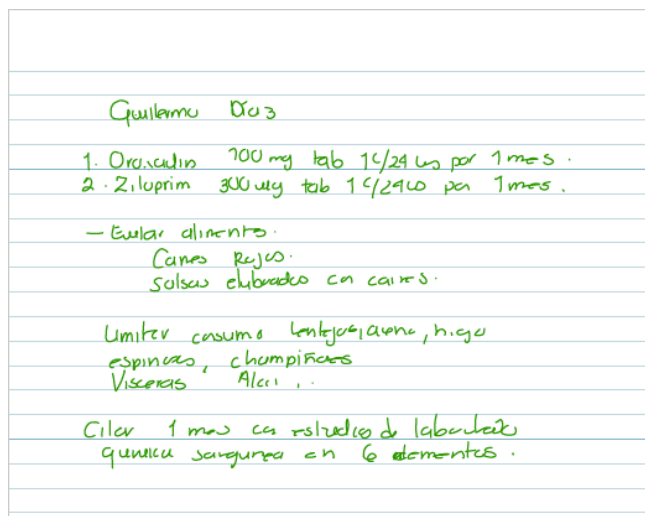 Guillermo Díaz
1. Oroxadin 100 mg tab 1 c/24 hs por 1 mes.
2. Ziloprim 300 mg tab 1 c/24 hs por 1 mes.
– Evitar alimentos.
Carnes Rojas.
Salsas elaboradas con carnes.
Limitar consumo lentejas, avena, higo
espinacas, champiñones
Visceras
Citar 1 mes con estudios de laboratorio
química sanguínea en 6 elementos.